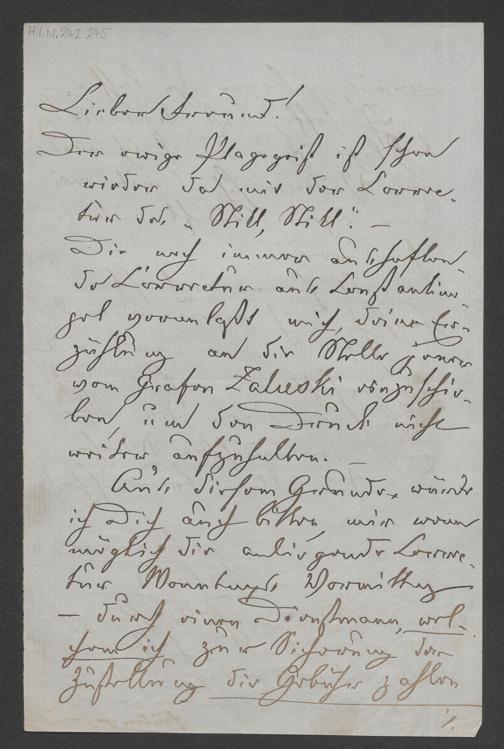 H.I.N. 242.245
Lieber Freund!
Der ewige Plagegeist ist schon
wieder da mit der Correc-
tur des „Still, Still". —
Die noch immer ausbleiben-
de Correctur aus Constantino-
pel veranlaßt mich, deine Er-
zählung an die Stelle jener
vom Grafen Zaluski einzuschie-
ben, um den Druck nicht
weiter aufzuhalten. —
Aus diesem Grunde würde
ich Dich auch bitten, mir wenn
möglich die anliegende Correc-
tur Montags Vormittag
— durch einen Dienstmann, wel-
chem ich zur Sicherung der
Zustellung die Gebühr zahlen
./.